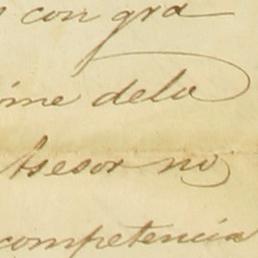 con gra
ome dela
Asesor no
competencia